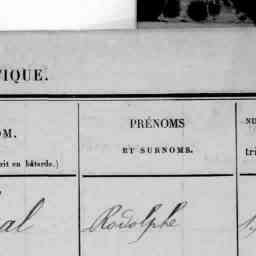 TIQUE.
OM. PRÉNOMS NU
rit en bâtarde.) ET SURNOMS. tri
al Rodolphe